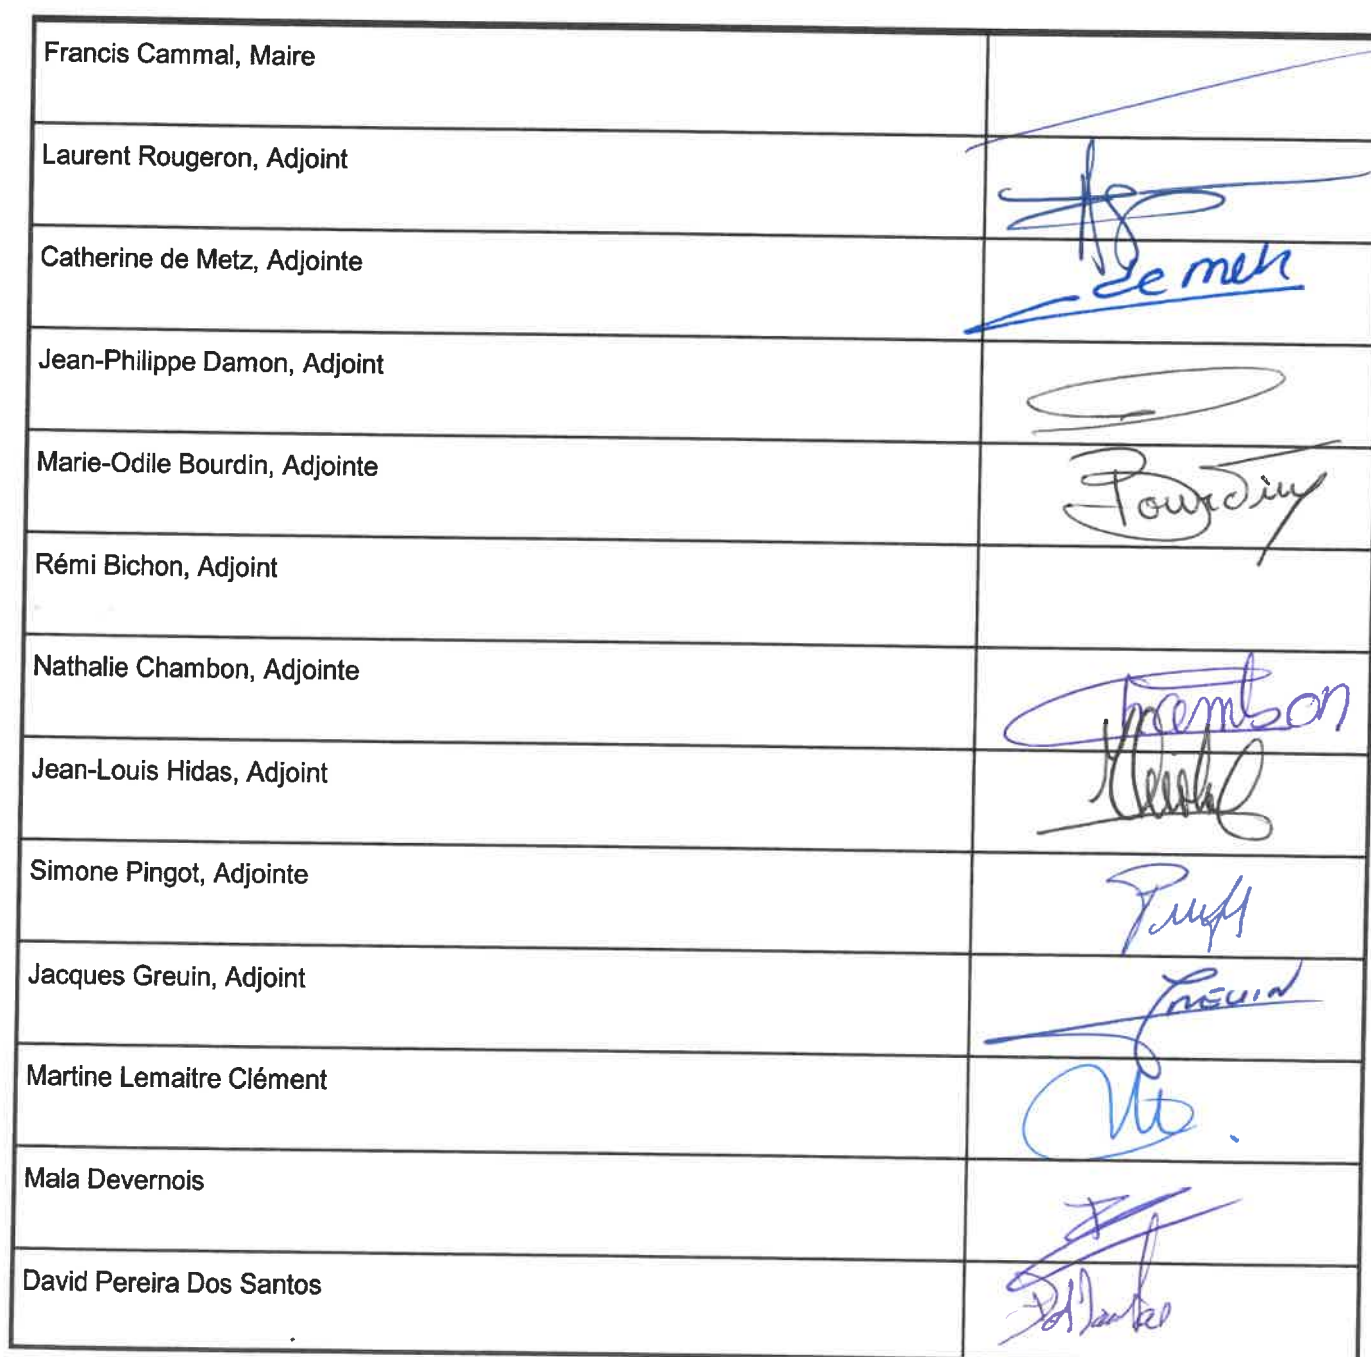 Francis Cammal, Maire
Laurent Rougeron, Adjoint
Catherine de Metz, Adjointe
de Metz
Jean-Philippe Damon, Adjoint
Marie-Odile Bourdin, Adjointe
Bourdin
Rémi Bichon, Adjoint
Nathalie Chambon, Adjointe
Chambon
Jean-Louis Hidas, Adjoint
Simone Pingot, Adjointe
Jacques Greuin, Adjoint
GREUIN
Martine Lemaitre Clément
Mala Devernois
David Pereira Dos Santos